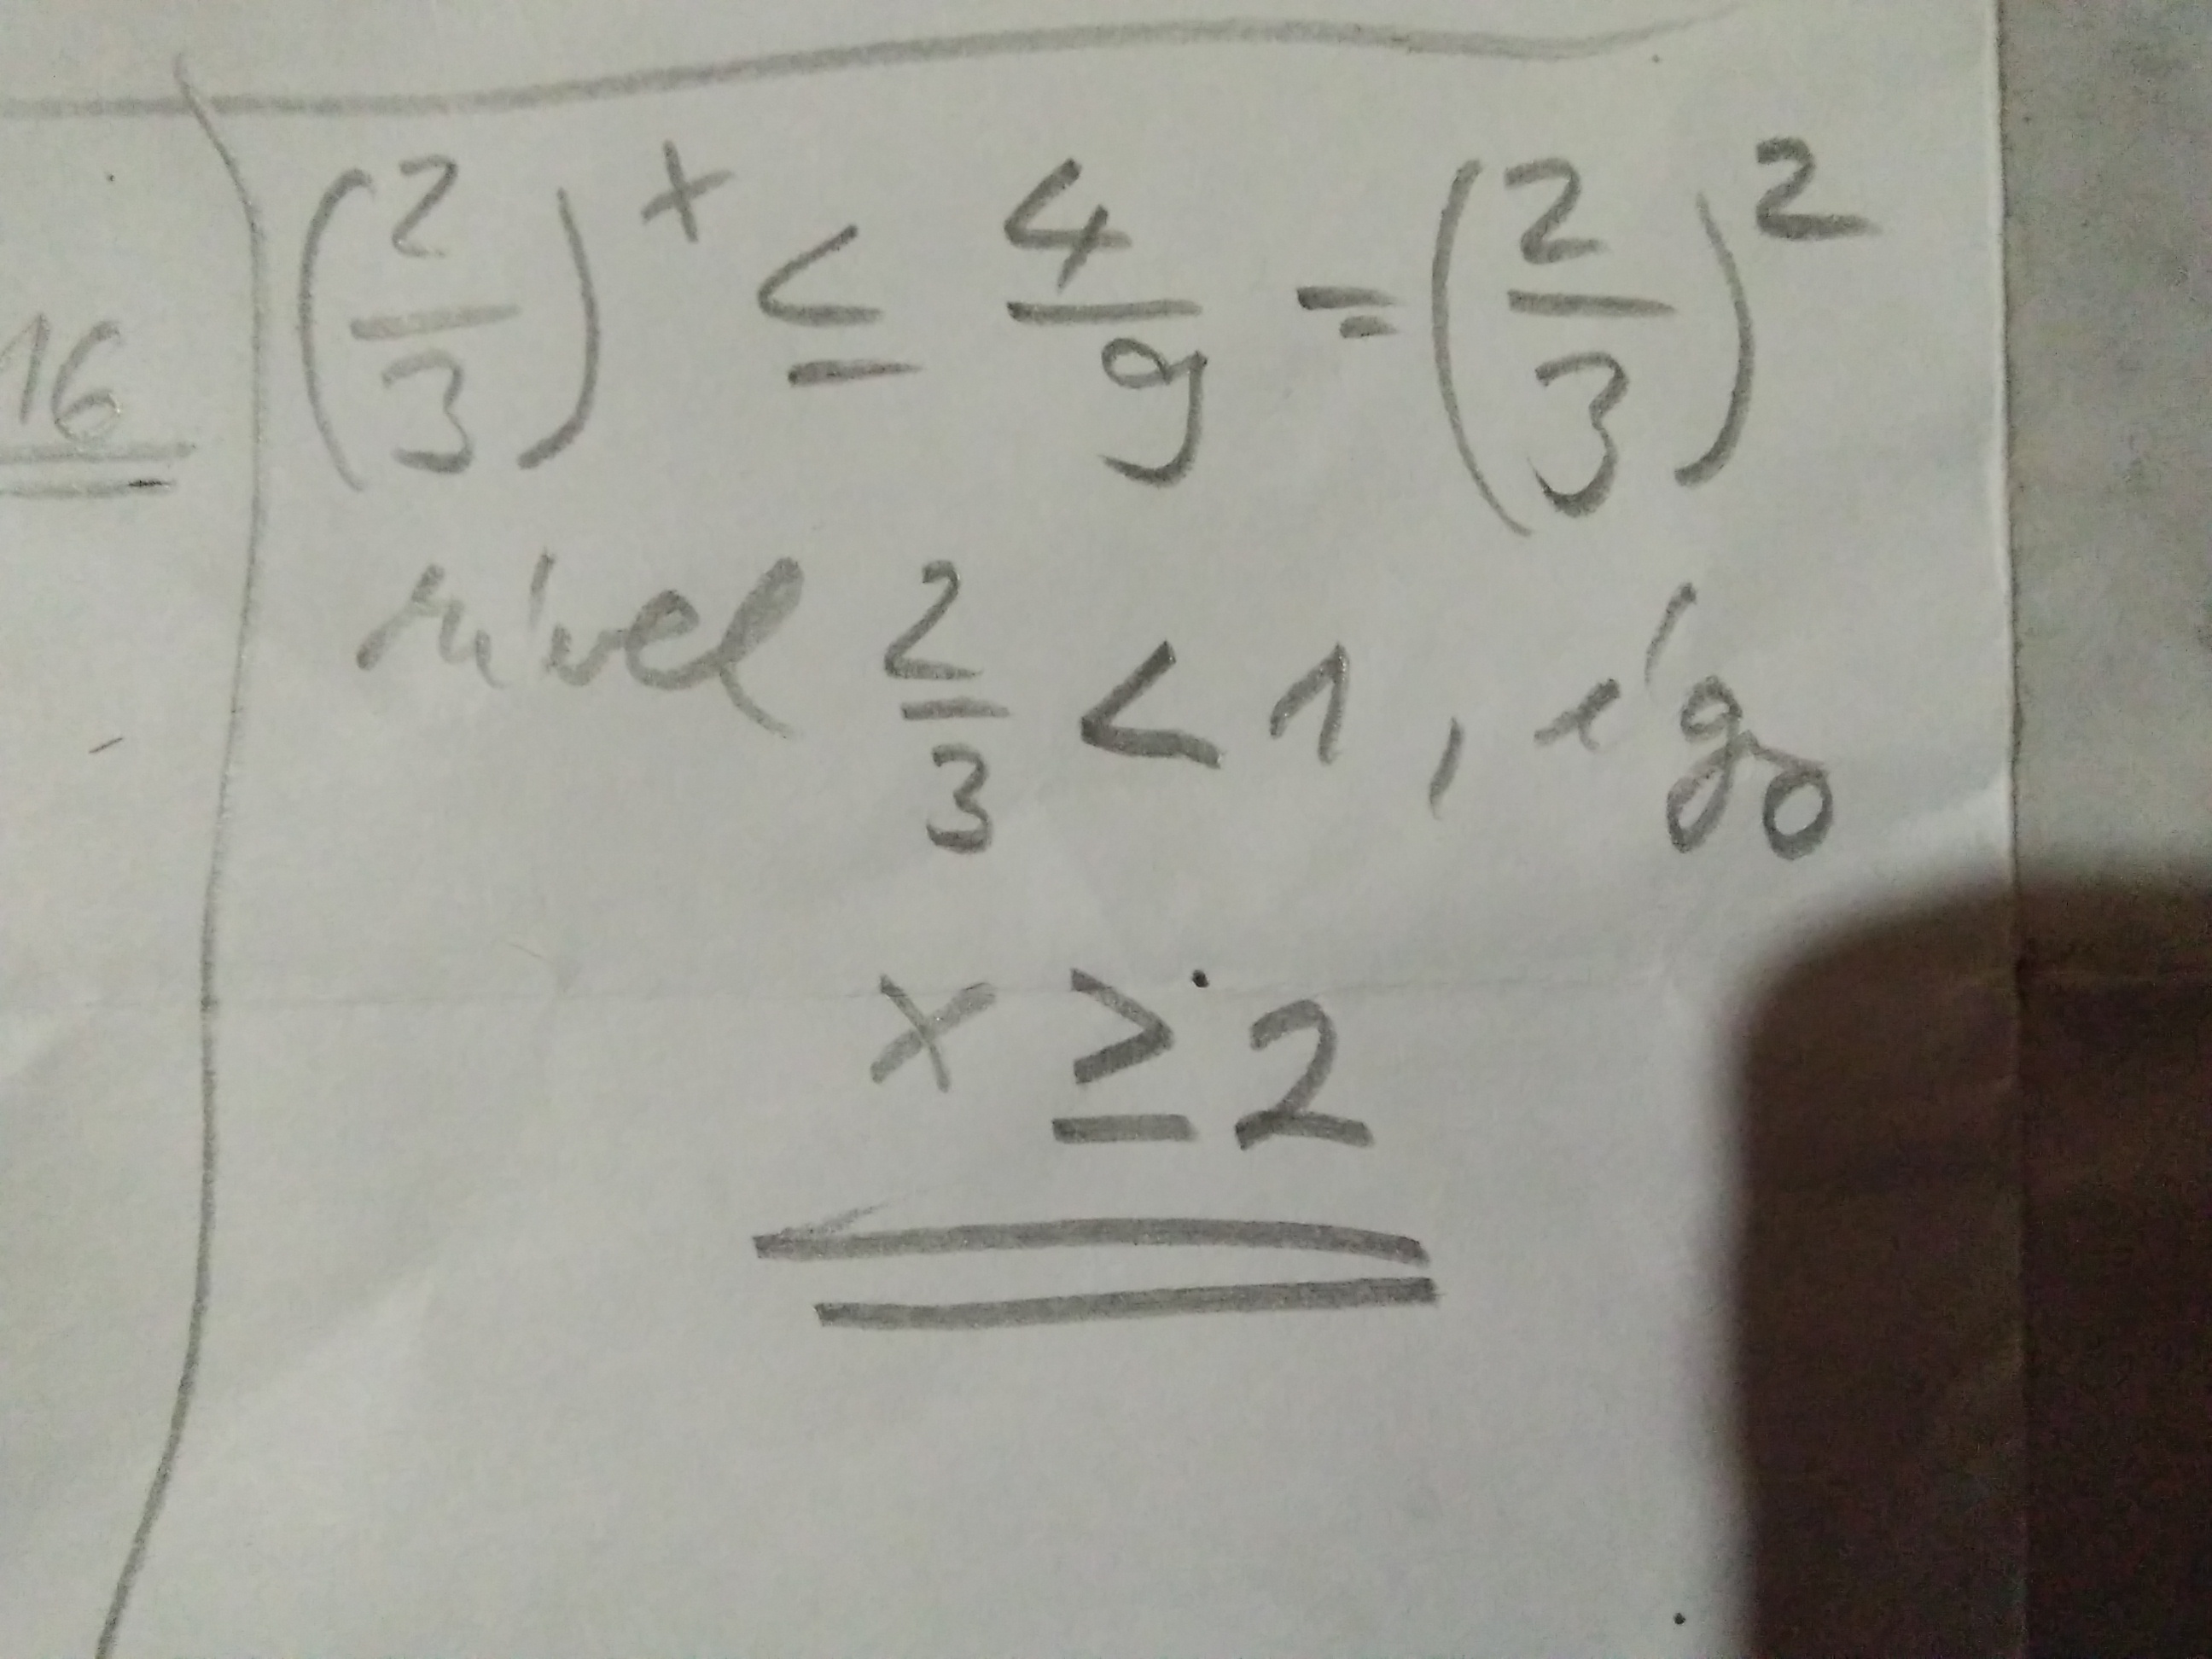 16
(2/3)^x ≤ 4/9 = (2/3)²
mivel 2/3 < 1, így
x ≥ 2